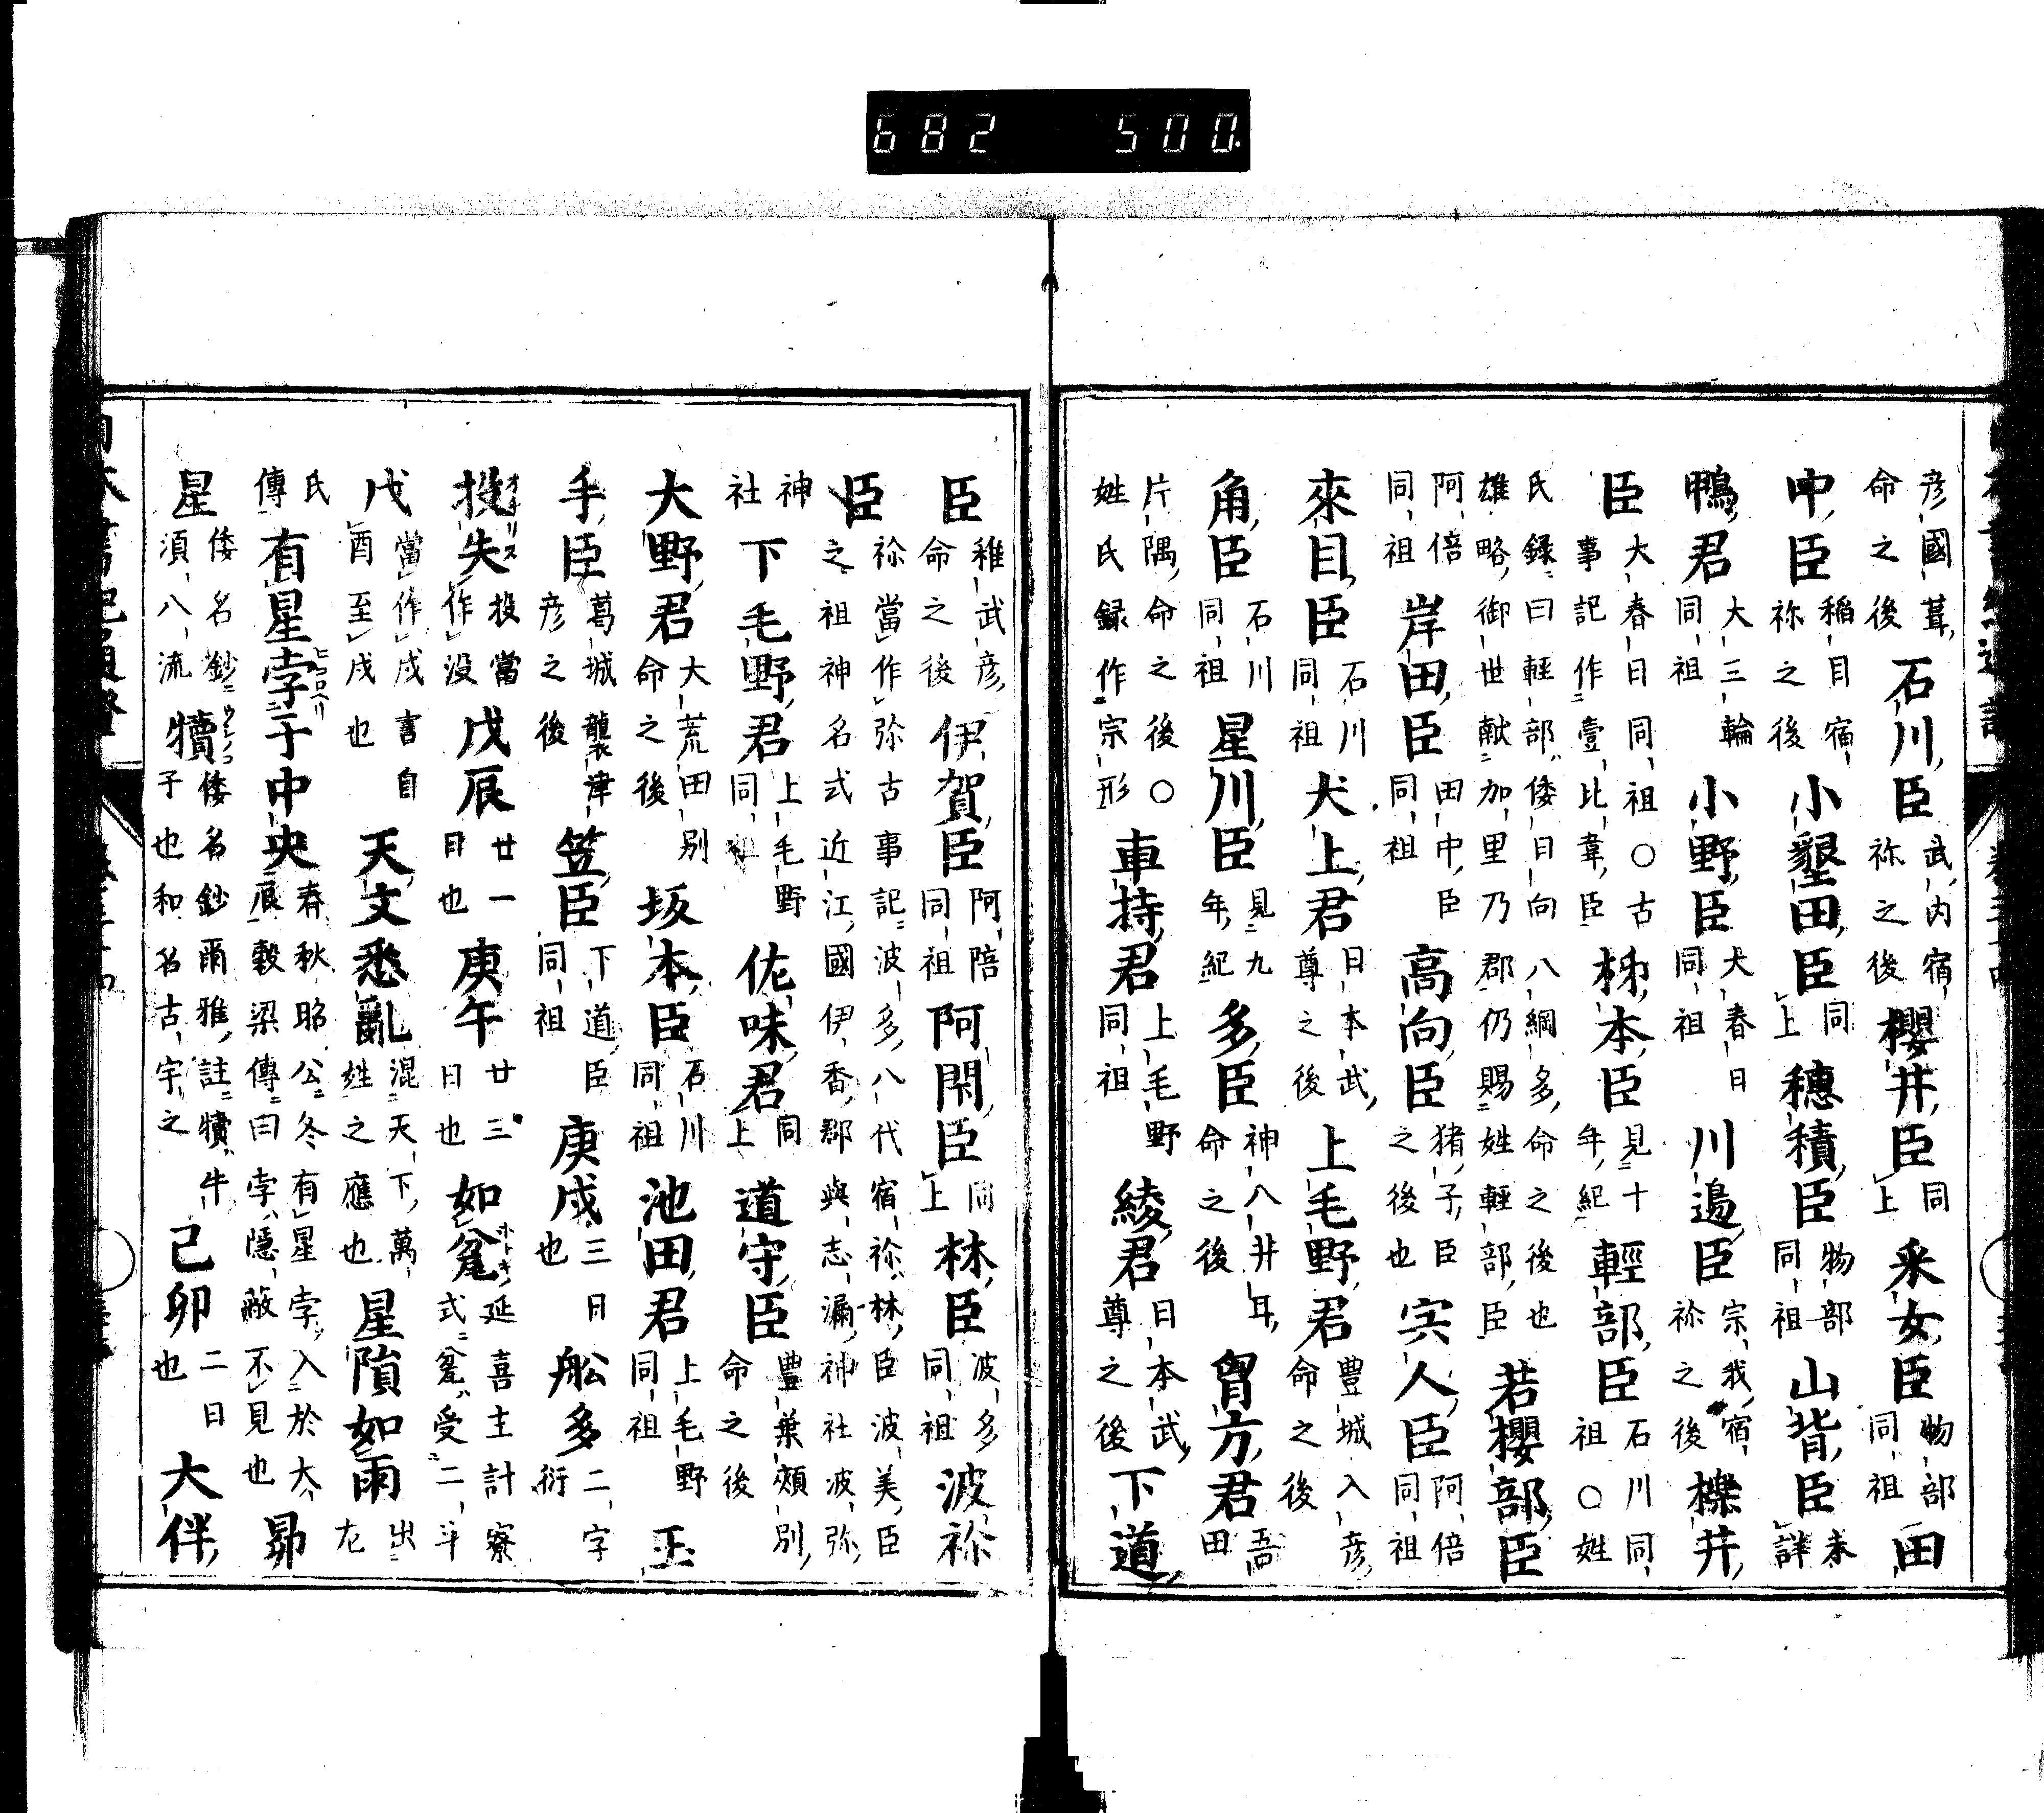 彦國葺命之後石川臣武内宿祢之後櫻井臣同上采女臣物部同祖田
中臣稲目宿祢之後小墾田臣同上穗積臣物部同祖山背臣未詳
鴨君大三輪同祖小野臣大春日同祖川邉臣宗我宿祢之後櫟井
臣大春日同祖○古事記作壹比韋臣柹本臣見十年紀輕部臣石川同祖○姓
氏録曰輕部倭日向八綱多命之後也雄略御世献加里乃郡仍賜姓輕部臣若櫻部臣
阿倍同祖岸田臣田中臣同祖高向臣猪子臣之後也宍人臣阿倍同祖
來目臣石川同祖犬上君日本武尊之後上毛野君豊城入彦命之後
角臣石川同祖星川臣見九年紀多臣神八井耳命之後胷方君吾田
片隅命之後○姓氏録作宗形車持君上毛野同祖綾君日本武尊之後下道
臣稚武彦命之後伊賀臣阿陪同祖阿閇臣同上林臣波多同祖波祢
臣祢當作弥古事記波多八代宿祢林臣波美臣之祖神名式近江國伊香郡與志漏神社波弥
神社下毛野君上毛野同祖佐味君同上道守臣豊葉頬別命之後
大野君大荒田別命之後坂本臣石川同祖池田君上毛野同祖玉
手臣葛城襲津彦之後笠臣下道臣同祖庚戌三日也舩多二字衍
投失投當作没戊辰廿一日也庚午廿三日也如瓮延喜主計寮式瓮受二斗
戊當作戌書自酉至戌也天文悉亂混天下萬姓之應也星隕如雨出左
氏傳有星孛于中央春秋昭公冬有星孛入於大辰穀梁傳曰孛隠蔽不見也昴
星倭名鈔須八流犢倭名鈔爾雅註犢牛子也和名古宇之己卯二日也大伴
682 500